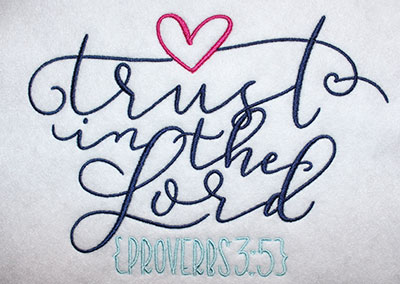 trust
in the
Lord
{PROVERBS 3:5}